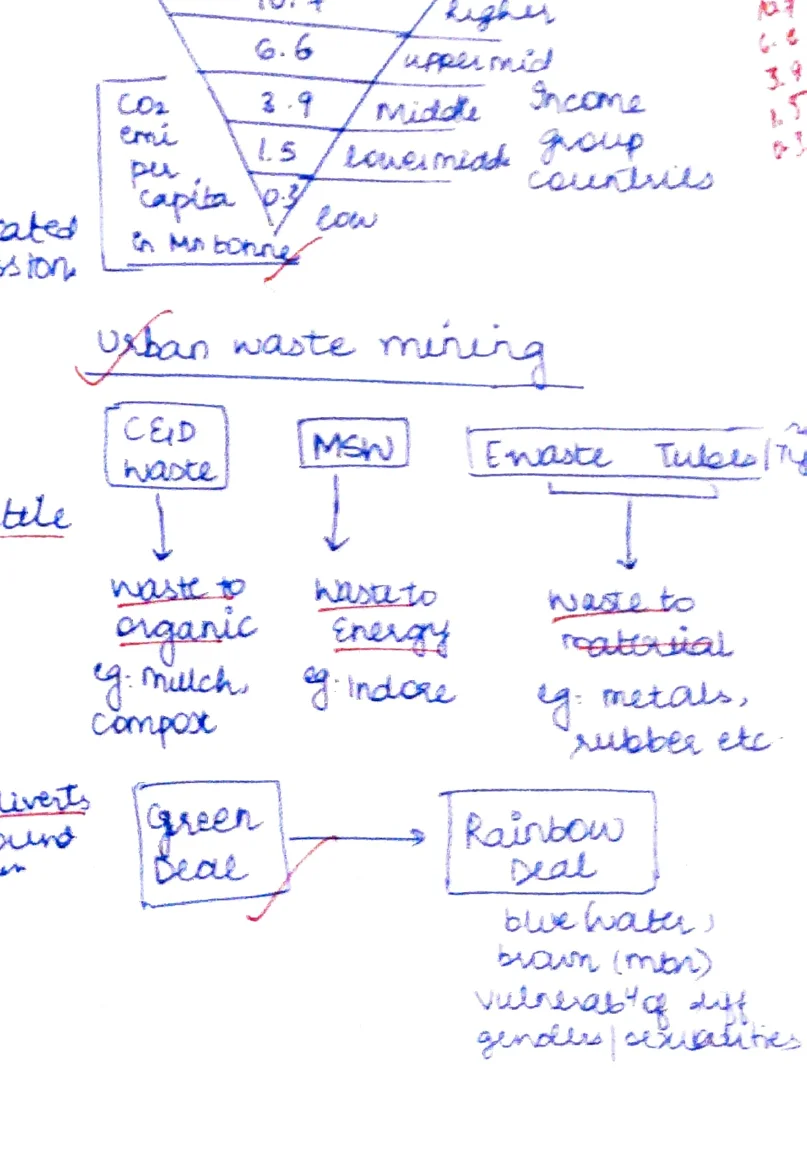 10.7 higher
6.6 uppermid
3.9 middle Income
1.5 lowermidd group
0.3 low countries
CO2
emi
per
capita
in Mn tonne
10.7
6.6
3.9
1.5
0.3
Urban waste mining
C&D
waste
MSW
Ewaste Tubes/
waste to
organic
eg: mulch,
compost
waste to
Energy
eg: Indore
waste to
material
eg: metals,
rubber etc.
Green
Deal
Rainbow
Deal
blue (water)
brown (mtn)
vulnerabty of diff
genders/sexualities